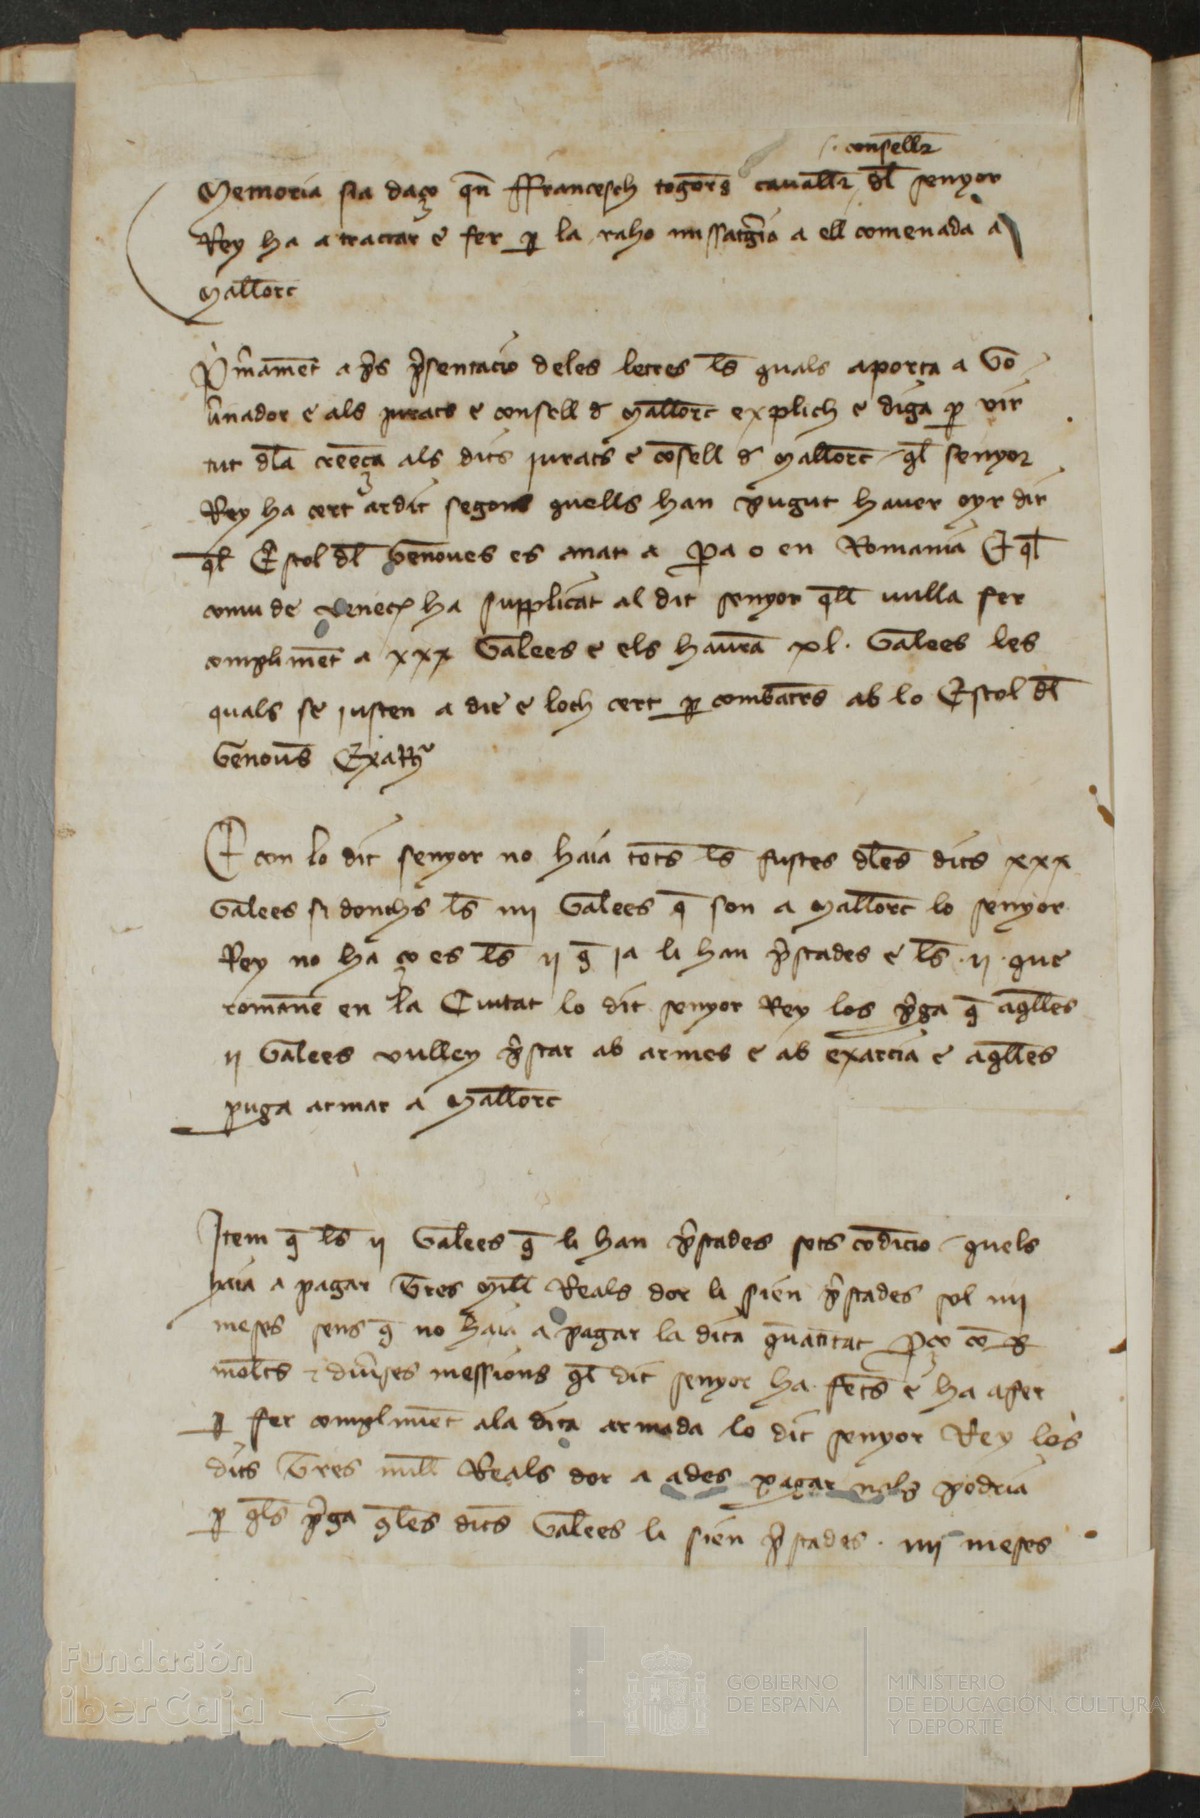 · consellr
Memoria sia daço qn ffrancesch togores cavallr dl senyor
Rey ha a tractar e fer p la raho missatgria a ell comenada a
Mallorc
Primament aprs prsentacio de les letres ls quals aporta a Go
vrnador e als jurats e consell d Mallorc explich e diga p vir
tut dla creeça als dits jurats e cosell d Mallorc ql senyor
Rey ha cert ardit segons quells han pugut haver oyr dir
ql Estol dl Genoves es anat a Pa o en Romania E ql
comu de Venec ha supplicat al dit senyor qll vulla fer
compliment a xxx Galees e els haura xl. Galees les
quals se justen a die e loch cert p combatres ab lo Estol dl
Genovs
E con lo dit senyor no haia tots ls fustes dles dits xxx
Galees si donchs ls iiij Galees q son a Mallorc lo senyor
Rey no ha ço es ls ij q ja li han prstades e ls · ij · que
romane en la Ciutat lo dit senyor Rey los prga q aqlles
ij Galees vulley prstar ab armes e ab exarcia e aqlles
puga armar a Mallorc
Item q ls ij Galees q li han prstades sots codicio quels
haia a pagar Tres Mill Reals dor li sien prstades sol iiij
meses sens q no haia a pagar la dita quantitat pço co p
molts e divrses messions ql dit senyor ha fets e ha afer
p fer compliment ala dita armada lo dit senyor Rey los
dits Tres mill Reals dor a ades pagar nols podria
p qls prga qles dits Galees li sien prstades · iiij meses
Fundación
iberCaja
GOBIERNO
DE ESPAÑA
MINISTERIO
DE EDUCACIÓN, CULTURA
Y DEPORTE